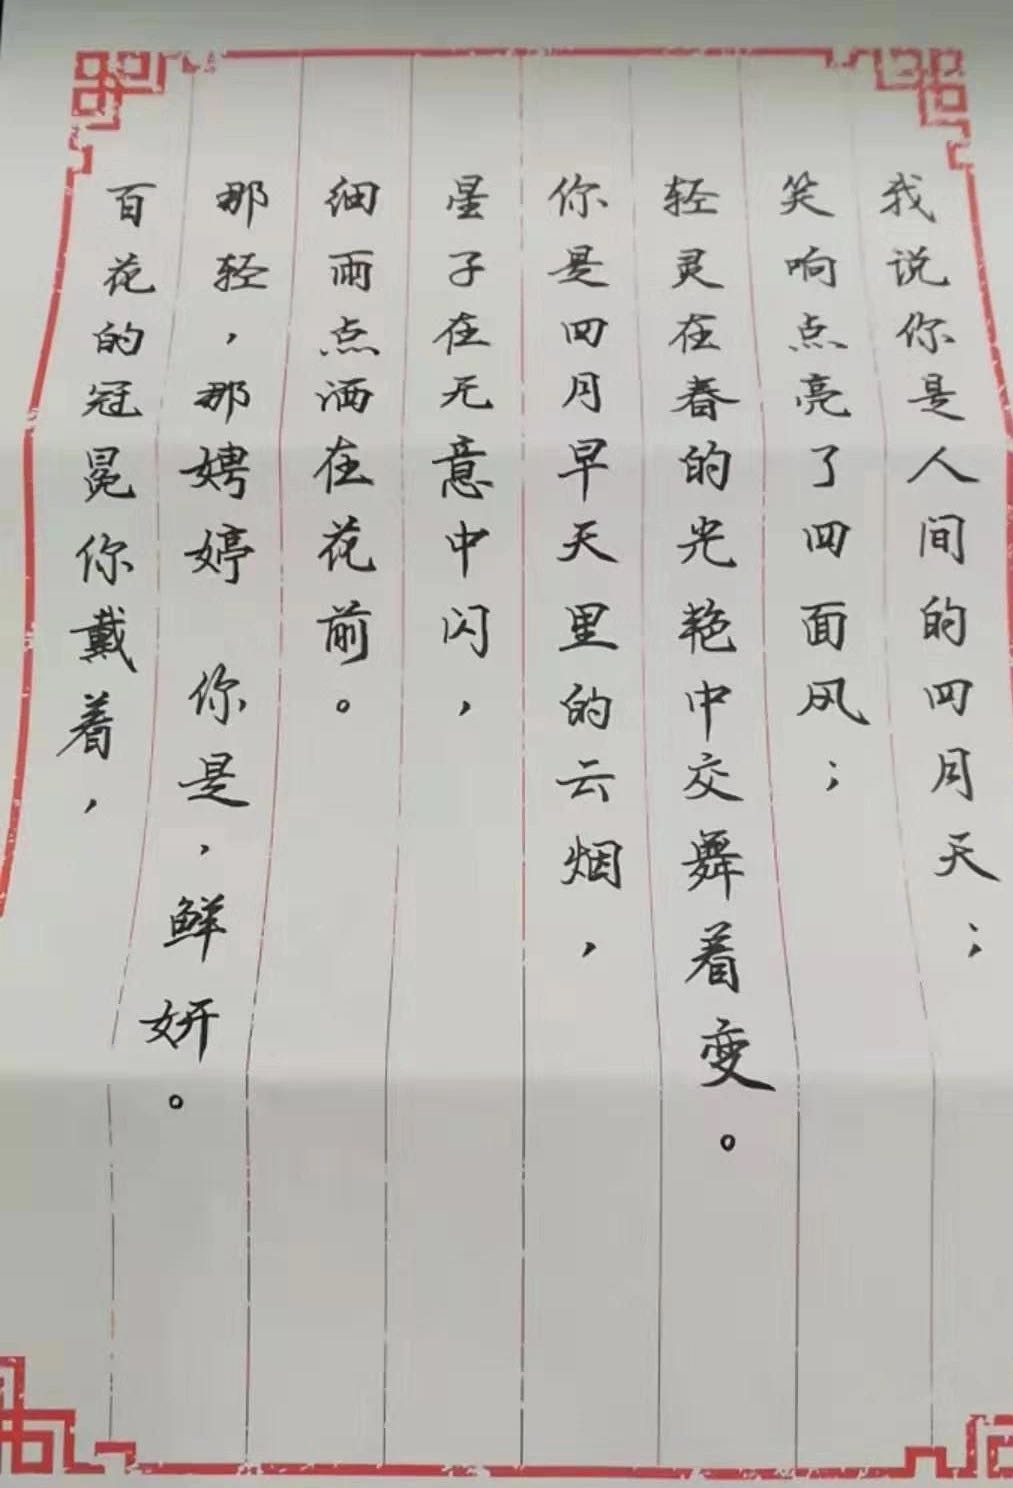 我说你是人间的四月天；
笑响点亮了四面风；
轻灵在春的光艳中交舞着变。
你是四月早天里的云烟，
星子在无意中闪，
细雨点洒在花前。
那轻，那娉婷 你是，鲜妍。
百花的冠冕你戴着，